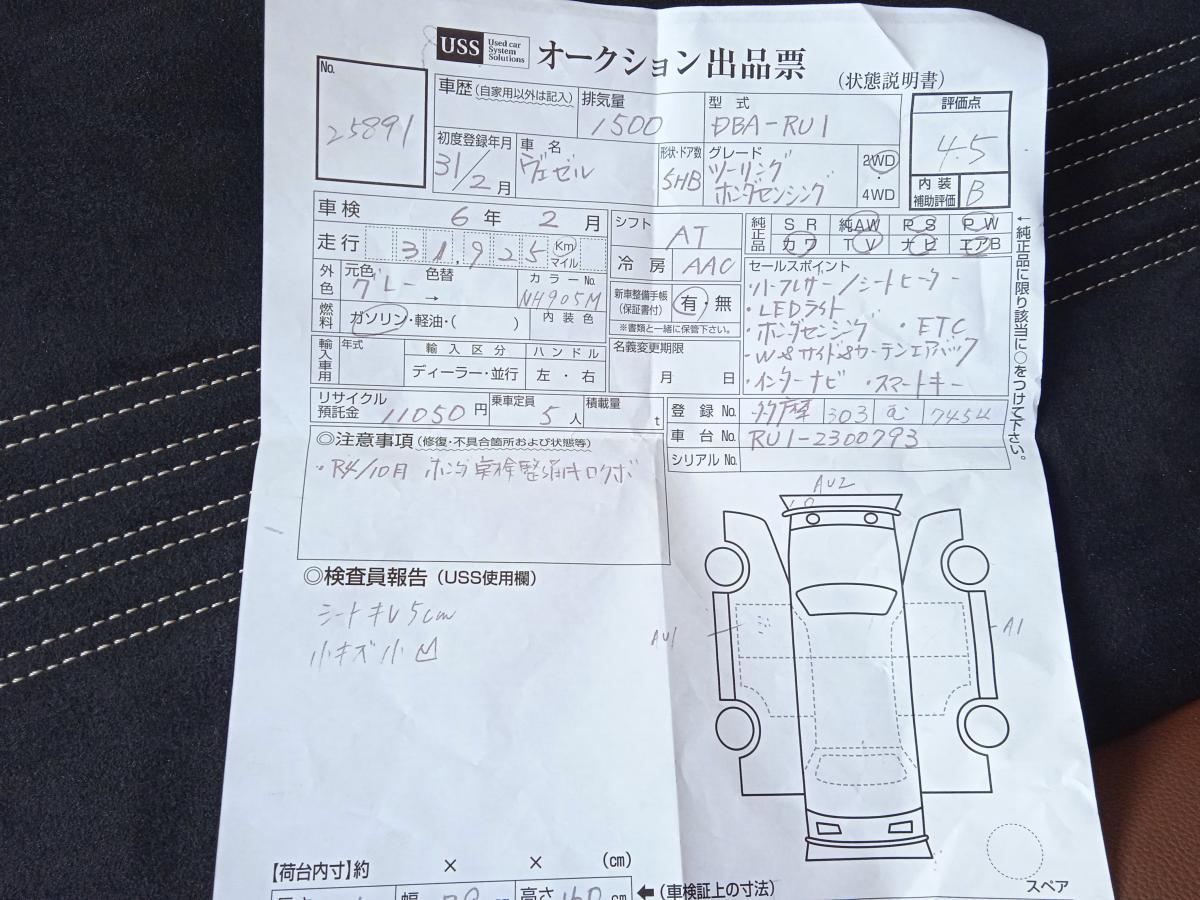 USS Used car System Solutions オークション出品票 (状態説明書)
No. 25891
車歴 (自家用以外は記入)
排気量 1500
型式 DBA-RU1
評価点 4.5
初度登録年月 31/2月
車名 ヴェゼル
形状・ドア数 5HB
グレード ツーリング ホンダセンシング
2WD・4WD
内装補助評価 B
車検 6年 2月
シフト AT
純正品 SR 純AW PS PW
カワ TV ナビ エアB
走行 31,925 Km マイル
冷房 AAC
セールスポイント
外色 元色 グレー 色替 →
カラーNo. NH905M
新車整備手帳 (保証書付) 有・無
※書類と一緒に保管下さい。
・パドルシフト/シートヒーター
・LEDライト
・ホンダセンシング ・ETC
・W&サイド&カーテンエアバック
・インターナビ ・スマートキー
燃料 ガソリン・軽油・( )
内装色
輸入車用 年式 輸入区分 ハンドル
ディーラー・並行 左・右
名義変更期限 月 日
←純正品に限り該当に○をつけて下さい。
リサイクル預託金 11050円
乗車定員 5人
積載量 t
登録No. 303 む
車台No. RU1-2300793
シリアルNo.
◎注意事項(修復・不具合箇所および状態等)
・R4/10月 ホンダ車検整備
◎検査員報告 (USS使用欄)
シートキレ5cm
小キズ小凹
AU2
AU1
A1
【荷台内寸】約 × × (cm)
幅 高さ 160 cm ←(車検証上の寸法)
スペア